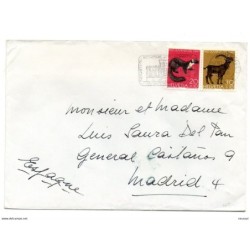 Monsieur et Madame
Luis Saura Del Pan
General Castaños 9
Madrid 4
Espagne